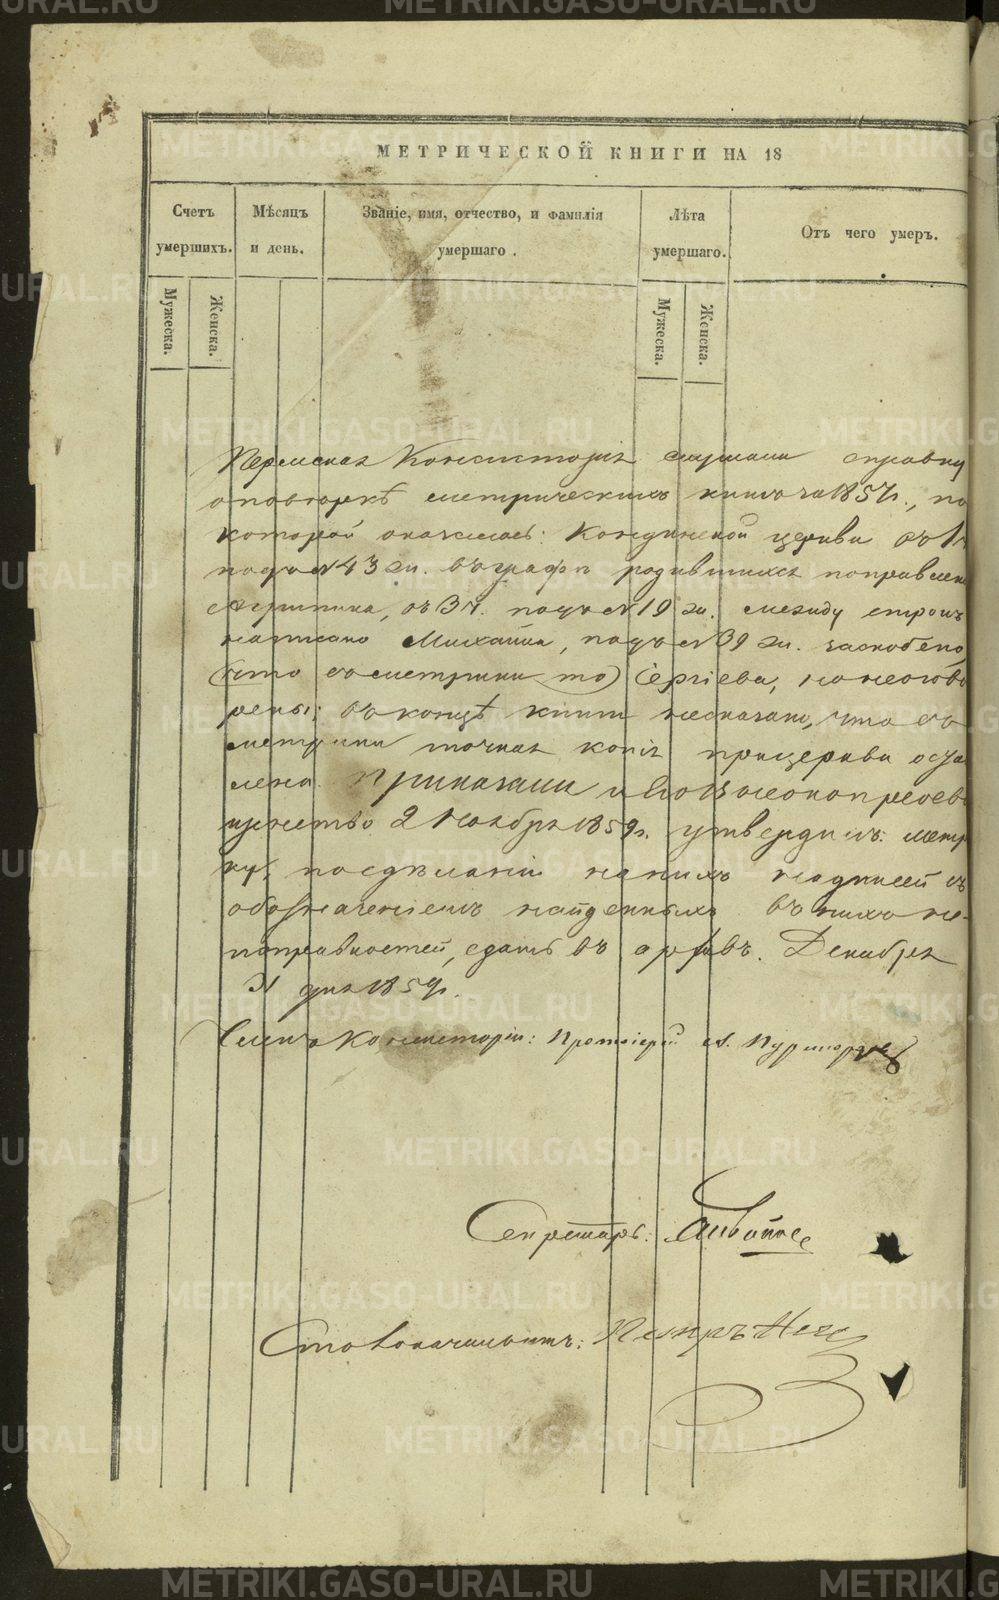 МЕТРИЧЕСКОЙ КНИГИ НА 18
Счетъ умершихъ.
Мѣсяцъ и день.
Званіе, имя, отчество, и фамилія умершаго.
Лѣта умершаго.
Отъ чего умеръ.
Мужеска.
Женска.
Мужеска.
Женска.
Пермская Консисторія слушали справку
о повѣркѣ метрическихъ книгъ за 1857 г., по
которой оказалось: Кондинской церкви въ 1 ч.
подъ № 43 ж. въ графѣ родившихся поправлено
Агрипина, въ 3 ч. подъ № 19 ж. между строкъ
написано Михайла, подъ № 39 ж. заскоблено
(что въ метрики то) Сергіева, но не огово
рены; въ концѣ книги не сказано, что съ
метрики точная копія при церкви оста
лена. Приказали и Его Высокопреосвя
щенство 2 Ноября 1859 г. утвердилъ: метри
ку, по сдѣланіи на нихъ надписей съ
обозначеніемъ найденныхъ въ нихъ не-
поправностей, сдать въ архивъ. Декабря
31 дня 1859 г.
Членъ Консисторіи: Протоіерей
Секретарь:
Столоначальникъ: Петръ
METRIKI.GASO-URAL.RU